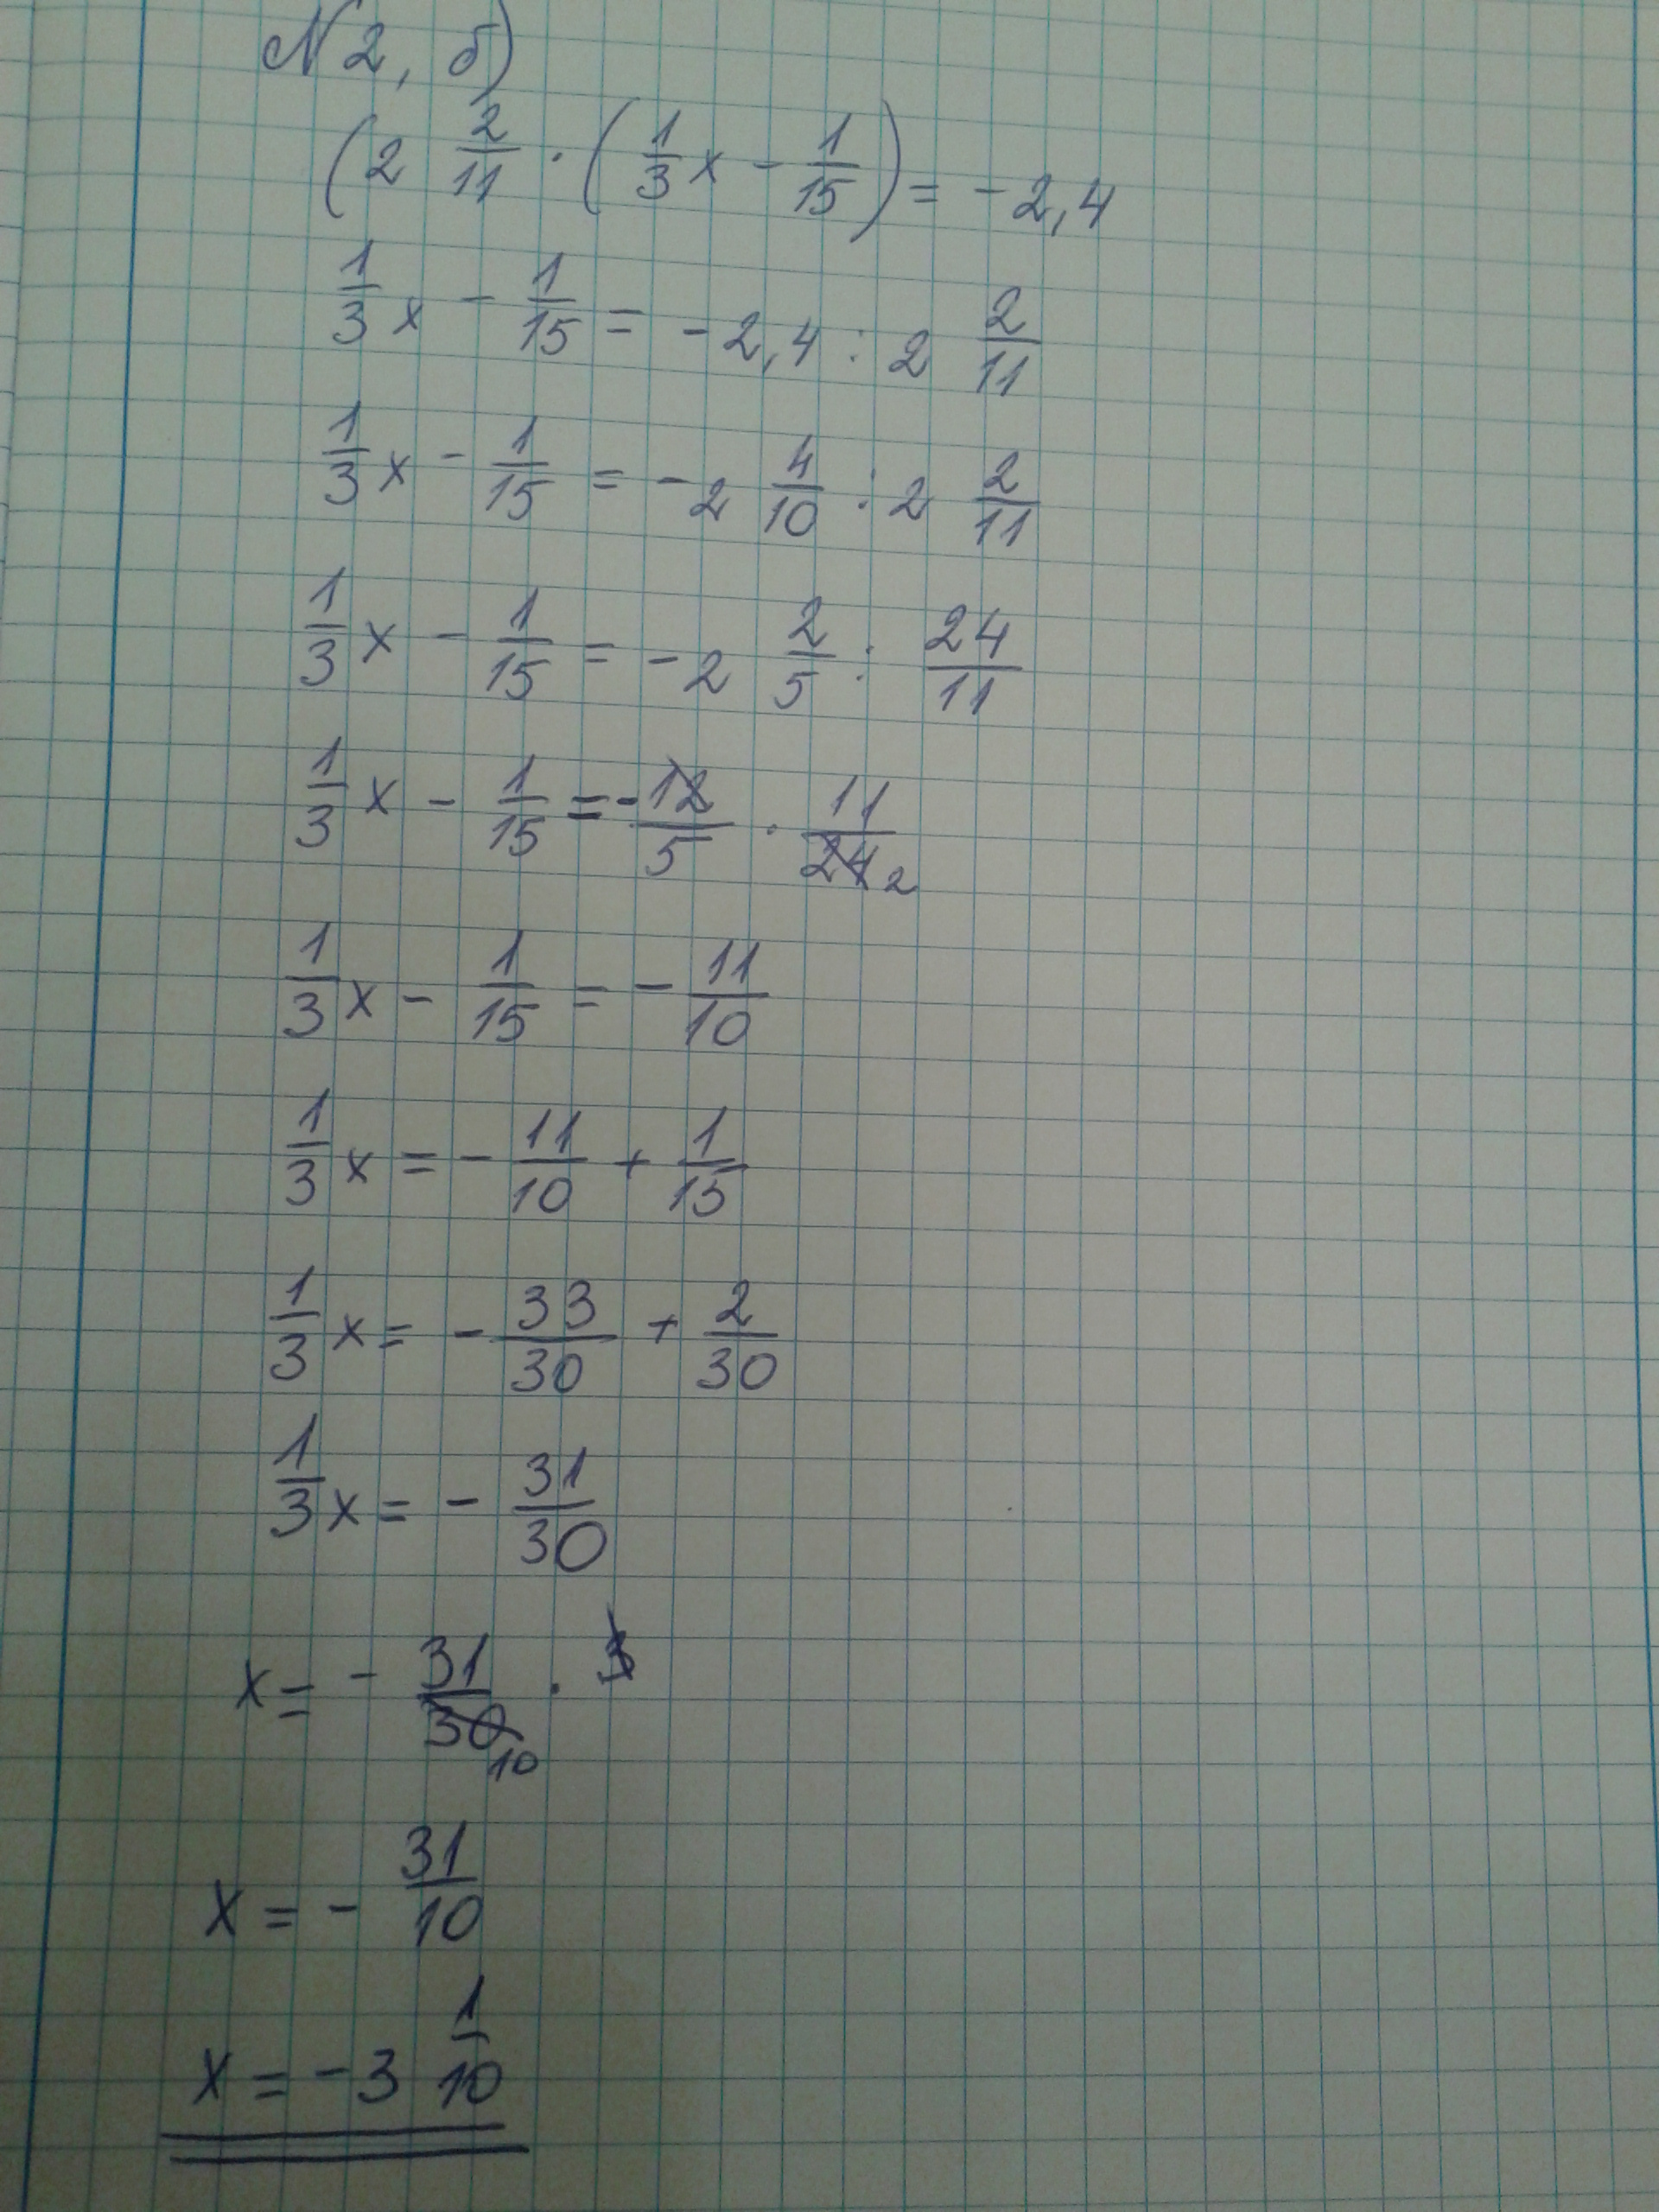 N2, б)
(2 2/11 · (1/3 x - 1/15) = -2,4
1/3 x - 1/15 = -2,4 : 2 2/11
1/3 x - 1/15 = -2 4/10 : 2 2/11
1/3 x - 1/15 = -2 2/5 : 24/11
1/3 x - 1/15 = -12/5 · 11/24 2
1/3 x - 1/15 = - 11/10
1/3 x = - 11/10 + 1/15
1/3 x = - 33/30 + 2/30
1/3 x = - 31/30
x = - 31/30 10 · 3
x = - 31/10
x = -3 1/10